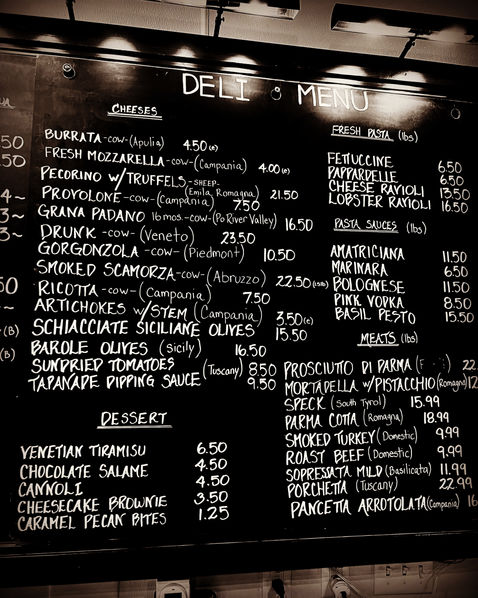 DELI • MENU
CHEESES
BURRATA-COW-(Apulia) 4.50(e)
FRESH MOZZARELLA-COW-(Campania) 4.00(e)
PECORINO W/TRUFFELS-SHEEP-(Emila, Romagna) 21.50
PROVOLONE-COW-(Campania) 7.50
GRANA PADANO 16mos.-COW-(Po River Valley) 16.50
DRUNK-COW-(Veneto) 23.50
GORGONZOLA-COW-(Piedmont) 10.50
SMOKED SCAMORZA-COW-(Abruzzo) 22.50
RICOTTA-COW-(Campania) 7.50
ARTICHOKES W/STEM (Campania) 3.50(e)
SCHIACCIATE SICILIANE OLIVES 15.50
BAROLE OLIVES (Sicily) 16.50
SUNDRIED TOMATOES (Tuscany) 8.50
TAPANADE DIPPING SAUCE 9.50
DESSERT
VENETIAN TIRAMISU 6.50
CHOCOLATE SALAME 4.50
CANNOLI 4.50
CHEESECAKE BROWNIE 3.50
CARAMEL PECAN BITES 1.25
FRESH PASTA (lbs)
FETTUCCINE 6.50
PAPPARDELLE 6.50
CHEESE RAVIOLI 13.50
LOBSTER RAVIOLI 16.50
PASTA SAUCES (lbs)
AMATRICIANA 11.50
MARINARA 6.50
BOLOGNESE 11.50
PINK VODKA 8.50
BASIL PESTO 15.50
MEATS (lbs)
PROSCIUTTO DI PARMA 22.
MORTADELLA W/PISTACCHIO (Romagna) 12
SPECK (South Tyrol) 15.99
PARMA COTTA (Romagna) 18.99
SMOKED TURKEY (Domestic) 9.99
ROAST BEEF (Domestic) 9.99
SOPRESSATA MILD (Basilicata) 11.99
PORCHETTA (Tuscany) 22.99
PANCETTA ARROTOLATA (Campania) 16